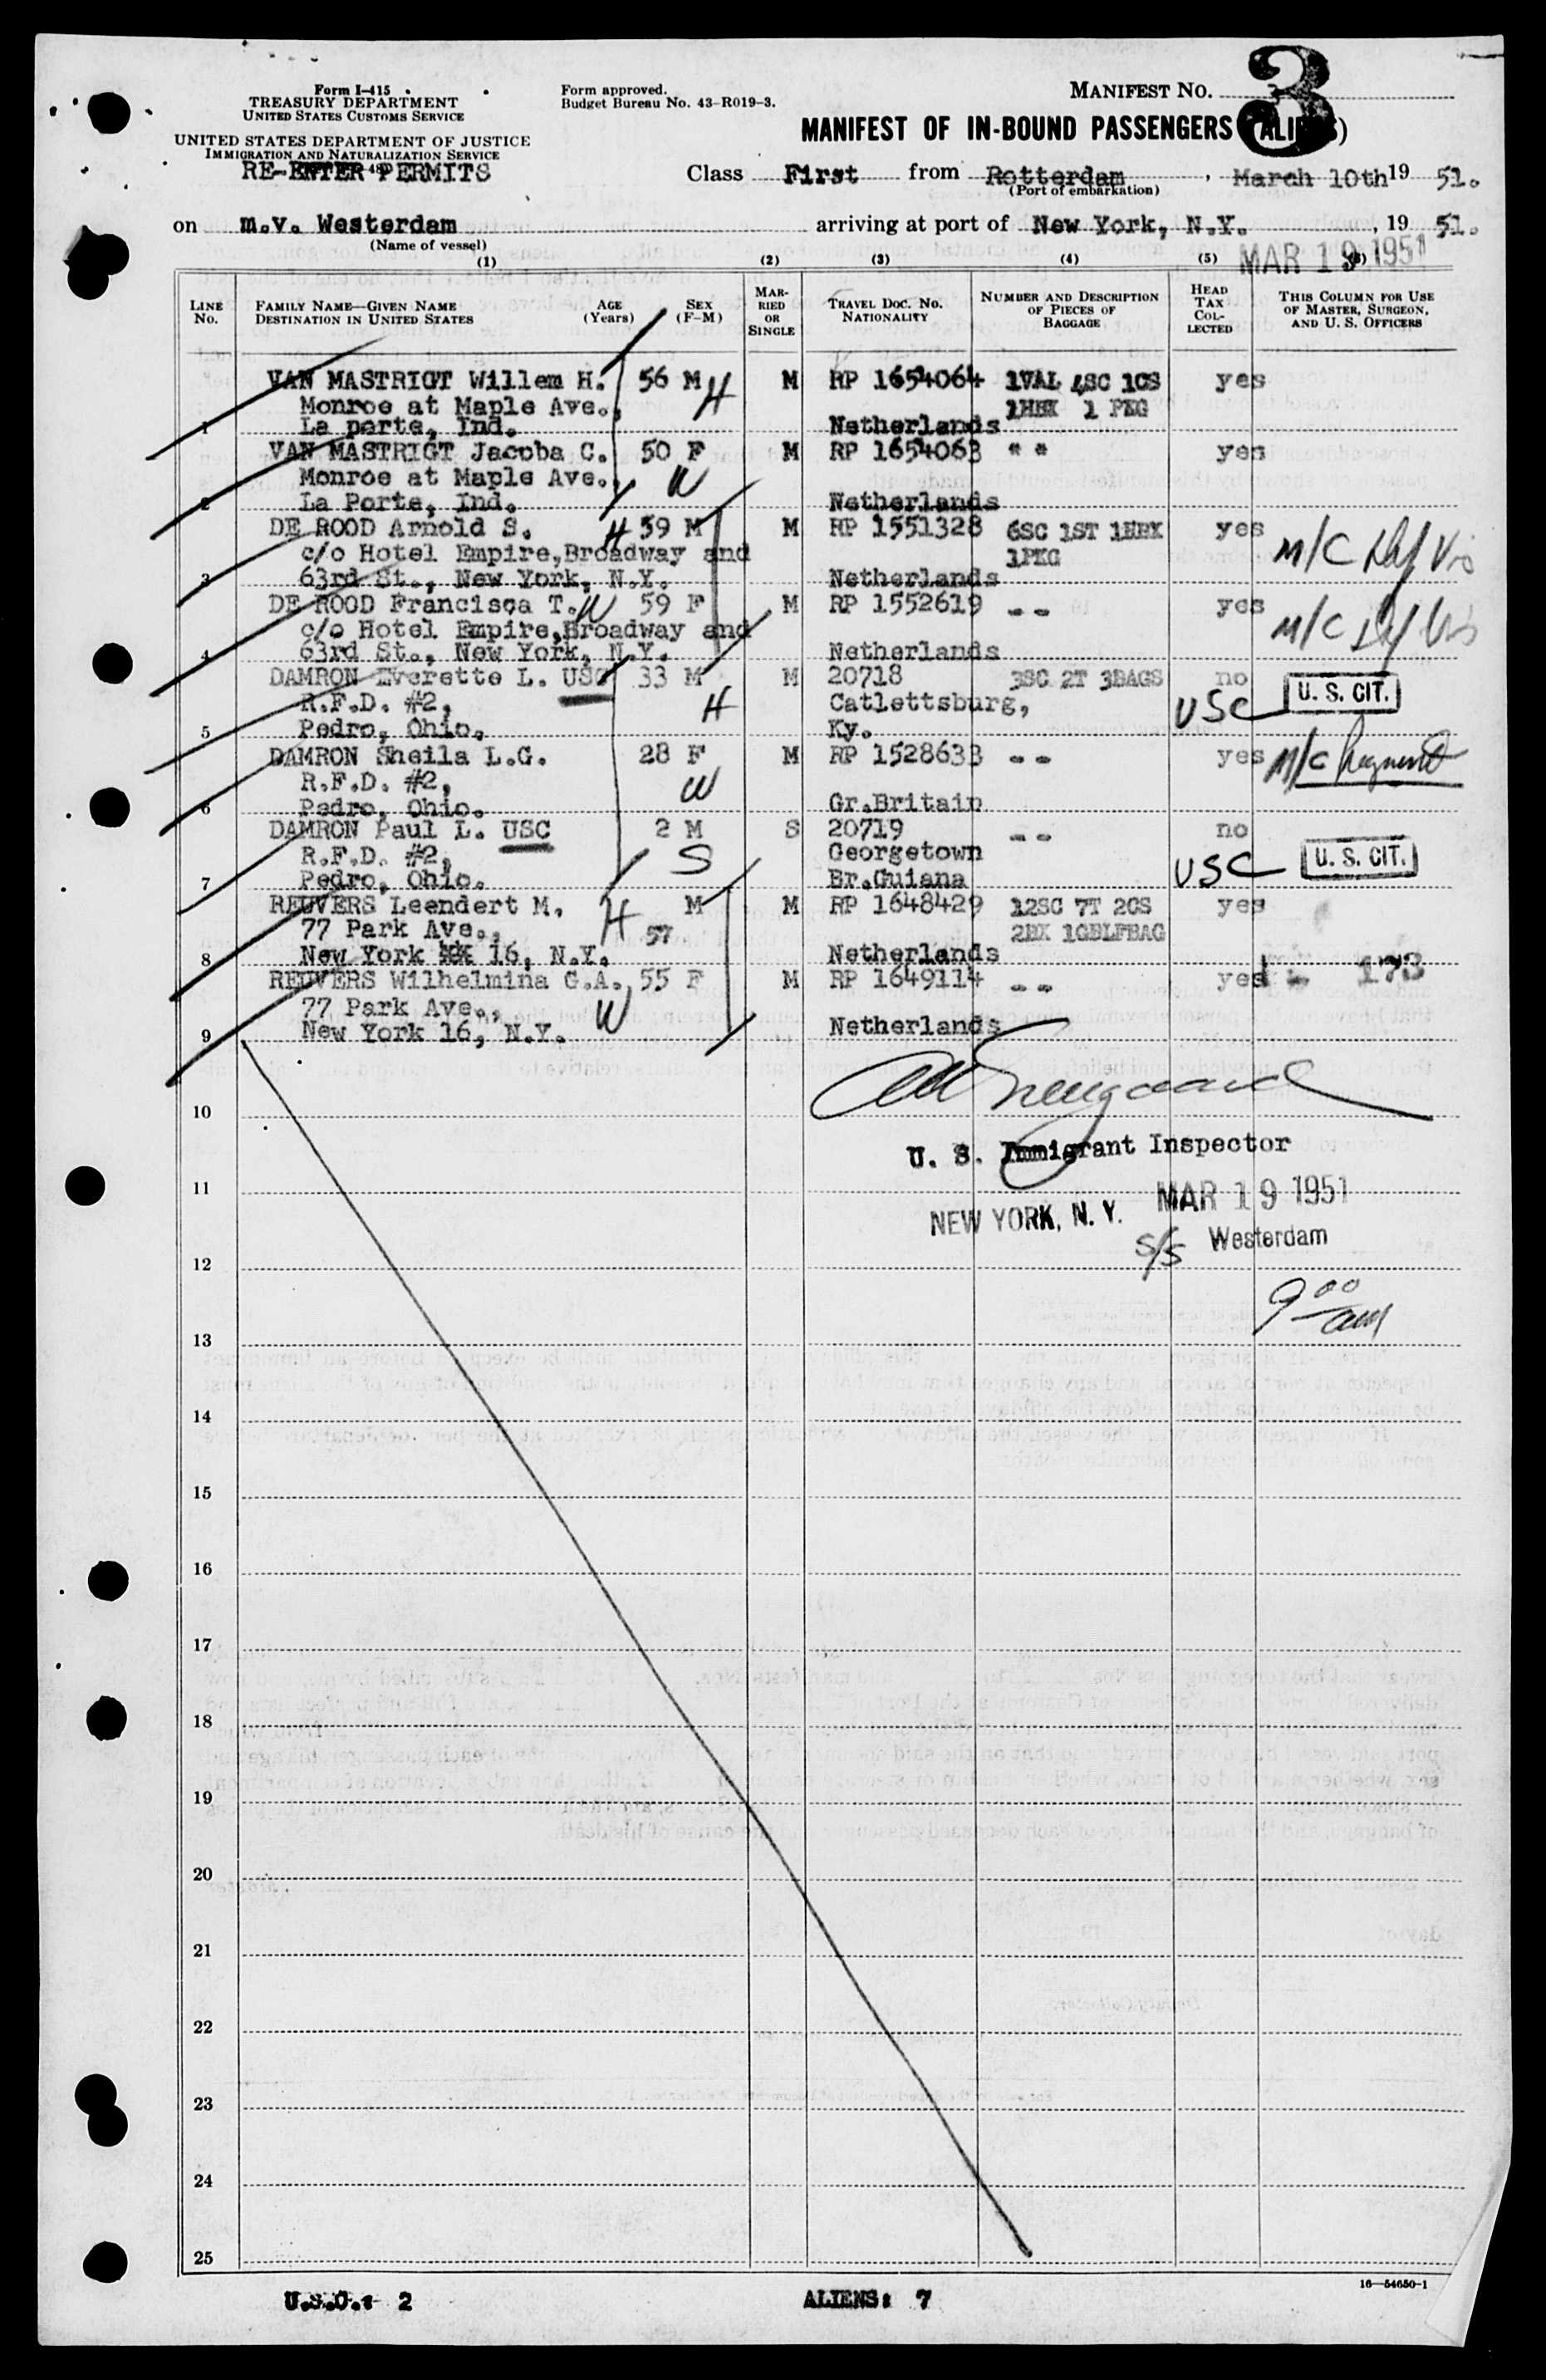 Form I-415
TREASURY DEPARTMENT
UNITED STATES CUSTOMS SERVICE
UNITED STATES DEPARTMENT OF JUSTICE
IMMIGRATION AND NATURALIZATION SERVICE
RE-ENTER PERMITS
Form approved.
Budget Bureau No. 43-R019-3.
MANIFEST NO. 3
MANIFEST OF IN-BOUND PASSENGERS (ALIENS)
Class First from Rotterdam, March 10th 19 51.
(Port of embarkation)
on m.v. Westerdam arriving at port of New York, N.Y., 19 51.
(Name of vessel)
MAR 19 1951
(1) (2) (3) (4) (5) (6)
LINE No.
FAMILY NAME—GIVEN NAME
DESTINATION IN UNITED STATES
AGE (Years)
SEX (F-M)
MARRIED OR SINGLE
TRAVEL DOC. NO. NATIONALITY
NUMBER AND DESCRIPTION OF PIECES OF BAGGAGE
HEAD TAX COLLECTED
THIS COLUMN FOR USE OF MASTER, SURGEON, AND U. S. OFFICERS
VAN MASTRIGT Willem H. 56 M H M RP 1654064 1VAL 4SC 1CS yes
Monroe at Maple Ave., 1HBX 1 PKG
1 La porte, Ind. Netherlands
VAN MASTRIGT Jacoba C. 50 F M RP 1654063 " " yes
Monroe at Maple Ave., W
2 La Porte, Ind. Netherlands
DE ROOD Arnold S. H 59 M M RP 1551328 6SC 1ST 1HBX yes
c/o Hotel Empire, Broadway and 1PKG M/C
3 63rd St., New York, N.Y. Netherlands
DE ROOD Francisca T. W 59 F M RP 1552619 -- yes
c/o Hotel Empire, Broadway and M/C
4 63rd St., New York, N.Y. Netherlands
DAMRON Everette L. USC 33 M M 20718 3SC 2T 3BAGS no
R.F.D. #2, H Catlettsburg, USC U. S. CIT.
5 Pedro, Ohio. Ky.
DAMRON Sheila L.G. 28 F M RP 1528633 -- yes M/C
R.F.D. #2, W
6 Pedro, Ohio. Gr.Britain
DAMRON Paul L. USC 2 M S 20719 -- no
R.F.D. #2, S Georgetown USC U. S. CIT.
7 Pedro, Ohio. Br.Guiana
REUVERS Leendert M. M M RP 1648429 12SC 7T 2CS yes
77 Park Ave., H 57 2BX 1GBLFBAG
8 New York 16, N.Y. Netherlands
REUVERS Wilhelmina G.A. 55 F M RP 1649114 -- yes 173
77 Park Ave., W
9 New York 16, N.Y. Netherlands
10
U. S. Immigrant Inspector
11
NEW YORK, N. Y. MAR 19 1951
S/S Westerdam
12
9 00 am
13
14
15
16
17
18
19
20
21
22
23
24
25
16—54650-1
U.S.C.: 2 ALIENS: 7